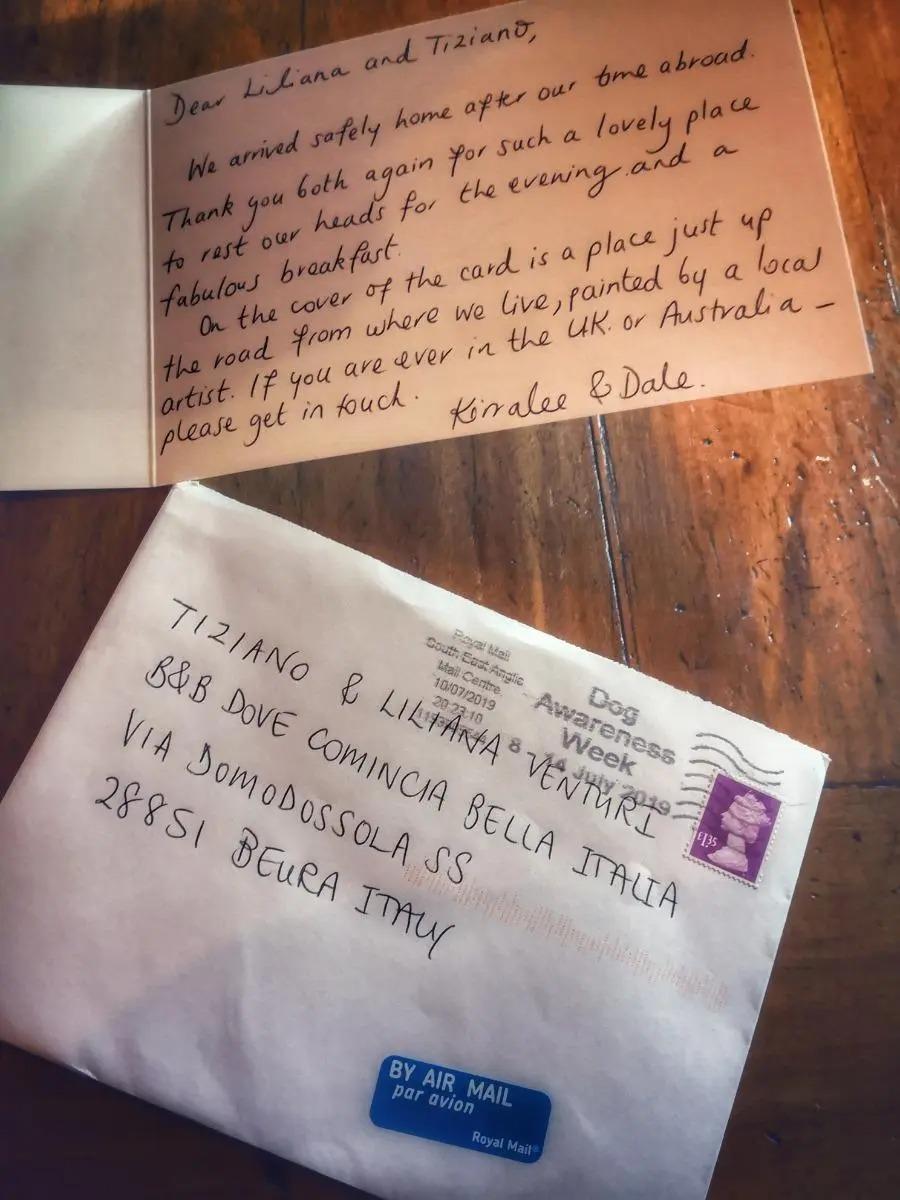 Dear Liliana and Tiziano,
We arrived safely home after our time abroad.
Thank you both again for such a lovely place
to rest our heads for the evening and a
fabulous breakfast.
On the cover of the card is a place just up
the road from where we live, painted by a local
artist. If you are ever in the UK. or Australia –
please get in touch.
Kirralee & Dale.
Royal Mail
South East Anglia
Mail Centre
10/07/2019
20:23:10
Dog
Awareness
Week
8 - 14 July 2019
£1.35
TIZIANO & LILIANA VENTURI
B&B DOVE COMINCIA BELLA ITALIA
VIA DOMODOSSOLA SS
28851 BEURA ITALY
BY AIR MAIL
par avion
Royal Mail®